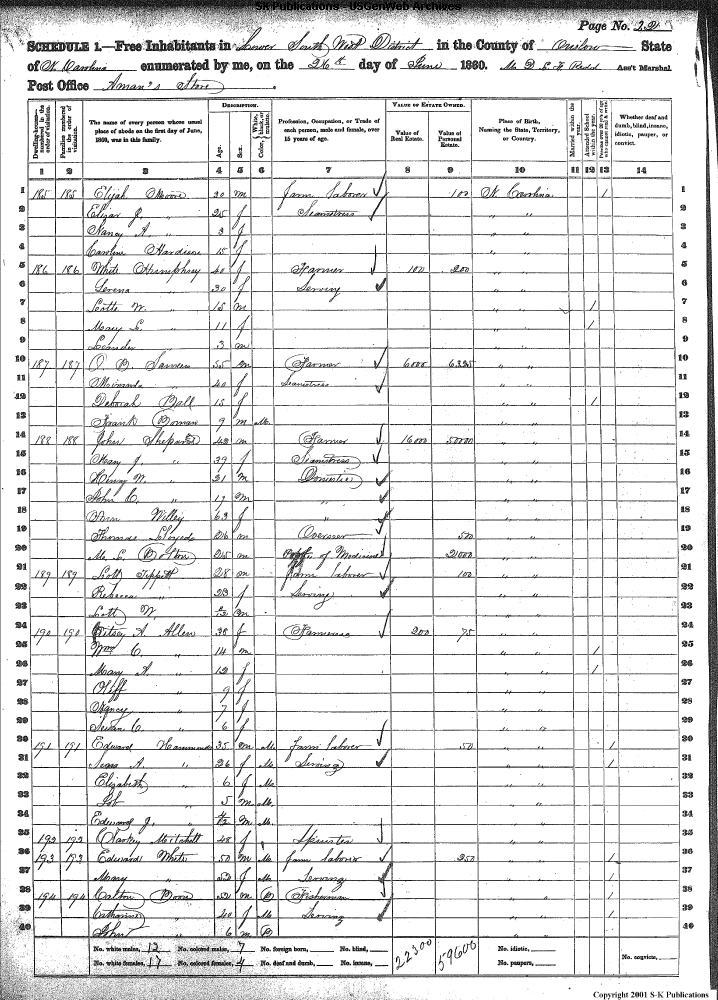 SK Publications - USGenWeb Archives
Page No. 22
SCHEDULE 1.—Free Inhabitants in Lower South West District in the County of Onslow State
of N. Carolina enumerated by me, on the 26th day of June 1860. Ass't Marshal
Post Office Aman's Store
Dwelling-houses—numbered in the order of visitation.
Families numbered in the order of visitation.
The name of every person whose usual place of abode on the first day of June, 1860, was in this family.
DESCRIPTION.
Age.
Sex.
Color, White, black, or mulatto.
Profession, Occupation, or Trade of each person, male and female, over 15 years of age.
VALUE OF ESTATE OWNED.
Value of Real Estate.
Value of Personal Estate.
Place of Birth, Naming the State, Territory, or Country.
Married within the year.
Attended School within the year.
Whether deaf and dumb, blind, insane, idiotic, pauper, or convict.
1 2 3 4 5 6 7 8 9 10 11 12 13 14
1 185 185 Elijah Moore 30 m farm laborer 100 N. Carolina 1 1
2 Elizar J. " 25 f Seamstress " " 2
3 Nancy A. " 3 f " " 3
4 Caroline Hardison 15 f " " 4
5 186 186 White Humphrey 40 f Farmer 100 200 " " 5
6 Serena " 30 f Serving " " 6
7 Lotte W. " 15 m " " 1 7
8 Mary " 11 f " " 1 8
9 3 m " " 9
10 187 187 O. B. Sanders 55 m Farmer 6000 6325 " " 10
11 Miranda " 40 f Seamstress " " 11
12 Deborah Ball 15 f " " 1 12
13 Frank Boman 9 m M. " " 13
14 188 188 John Shepard 42 m Farmer 16000 50000 " " 14
15 Mary J. " 39 f Seamstress " " 15
16 Henry W. " 21 m Domestic " " 16
17 John C. " 17 m " " " 17
18 Willey 63 f " " " 18
19 Thomas 26 m Overseer 500 " " 19
20 M. L. Bolton 25 m of Medicine 2000 " " 20
21 189 189 Lott Tippett 28 m farm laborer 100 " " 21
22 Rebecca " 23 f Serving " " 22
23 Lott W. " m " " 23
24 190 190 A. Allen 38 f Farmeress 200 75 " " 24
25 Wm C. " 14 m " " 1 25
26 Mary A. " 12 f " " 1 26
27 " 9 f " " 27
28 Nancy " 7 f " " 28
29 Susan C. " 6 f " " 29
30 191 191 Edward Hammonds 35 m M. farm laborer 50 " " 1 30
31 A. " 26 f M. Serving " " 1 31
32 Elizabeth " 6 f M. " " 32
33 Lot " 5 m M. " 33
34 Edward J. " m M. 34
35 192 192 Mitchell 48 f Spinster " " 35
36 193 193 Edward White 50 m M. farm laborer 250 " " 1 36
37 Mary " 52 f M. Serving " " 1 37
38 194 194 Calton Boon 52 m B Fisherman " " 1 38
39 Catharine " 40 f M. Serving " " 1 39
40 John " 6 m B " " 40
No. white males, 12 No. colored males, 7 No. foreign born, No. blind, 22300 59600 No. idiotic, No. convicts,
No. white females, 17 No. colored females, 4 No. deaf and dumb, No. insane, No. paupers,
Copyright 2001 S-K Publications